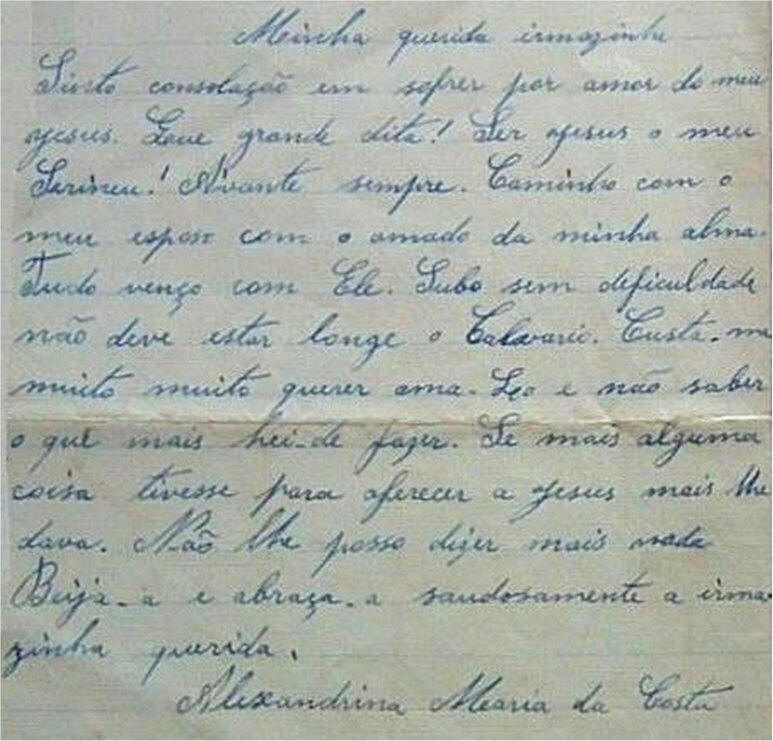 Minha querida irmazinha
Sinto consolação em sofrer por amor do meu
Jesus. Que grande dita! Ser Jesus o meu
Serineu! Avante sempre. Caminho com o
meu esposo com o amado da minha alma.
Tudo venço com Ele. Subo sem deficuldade
não deve estar longe o Calvario. Custa-me
muito muito querer ama-Lo e não saber
o que mais hei-de fazer. Se mais alguma
coisa tivesse para oferecer a Jesus mais lhe
dava. Não lhe posso dizer mais nada
Beija-a e abraça-a saudosamente a irma-
zinha querida.
Alexandrina Maria da Costa